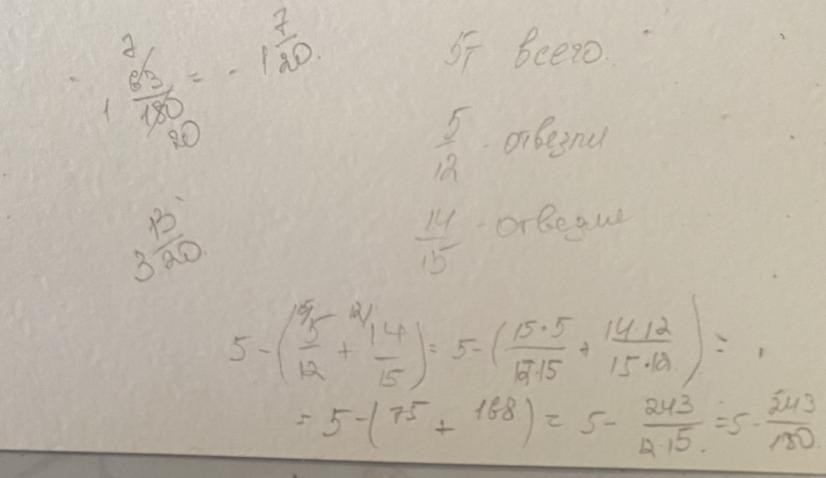 1 63/180 = 1 7/20.
7
20
3 13/20.
5т всего.
5/12 - отвезли
14/15 - отвезли
5 - (5/12 + 14/15) = 5 - (15·5/12·15 + 14·12/15·12) =
= 5 - (75 + 168) = 5 - 243/12·15. = 5 - 243/180.